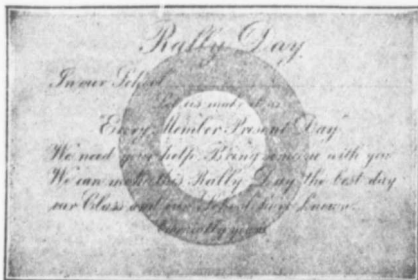 Rally Day
In our School
Let us make it as
"Every Member Present Day"
We need your help. Bring some one with you
We can make this Rally Day the best day
our Class and our School have known.
Cordially yours